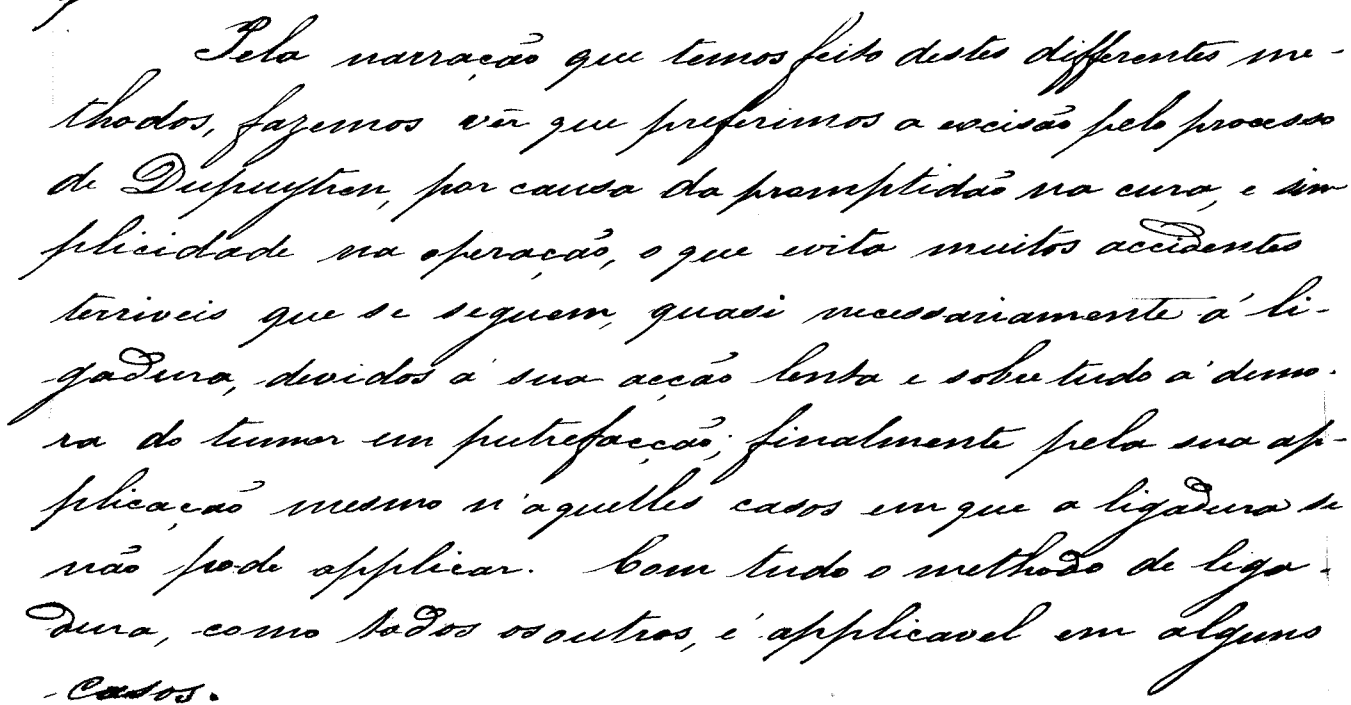 Pela narração que temos feito destes differentes me-
thodos, fazemos vêr que preferimos a excisão pelo processo
de Dupuytren, por causa da promptidão na cura, e sim
plicidade na operação, o que evita muitos accidentes
terriveis que se seguem, quasi necessariamente á li-
gadura, devidos á sua acção lenta e sobre tudo á demo-
ra do tumor em putrefacção; finalmente pela sua ap-
plicação mesmo n'aquelles casos em que a ligadura se
não pode applicar. Com tudo o methodo de liga-
dura, como todos os outros, é applicavel em alguns
casos.